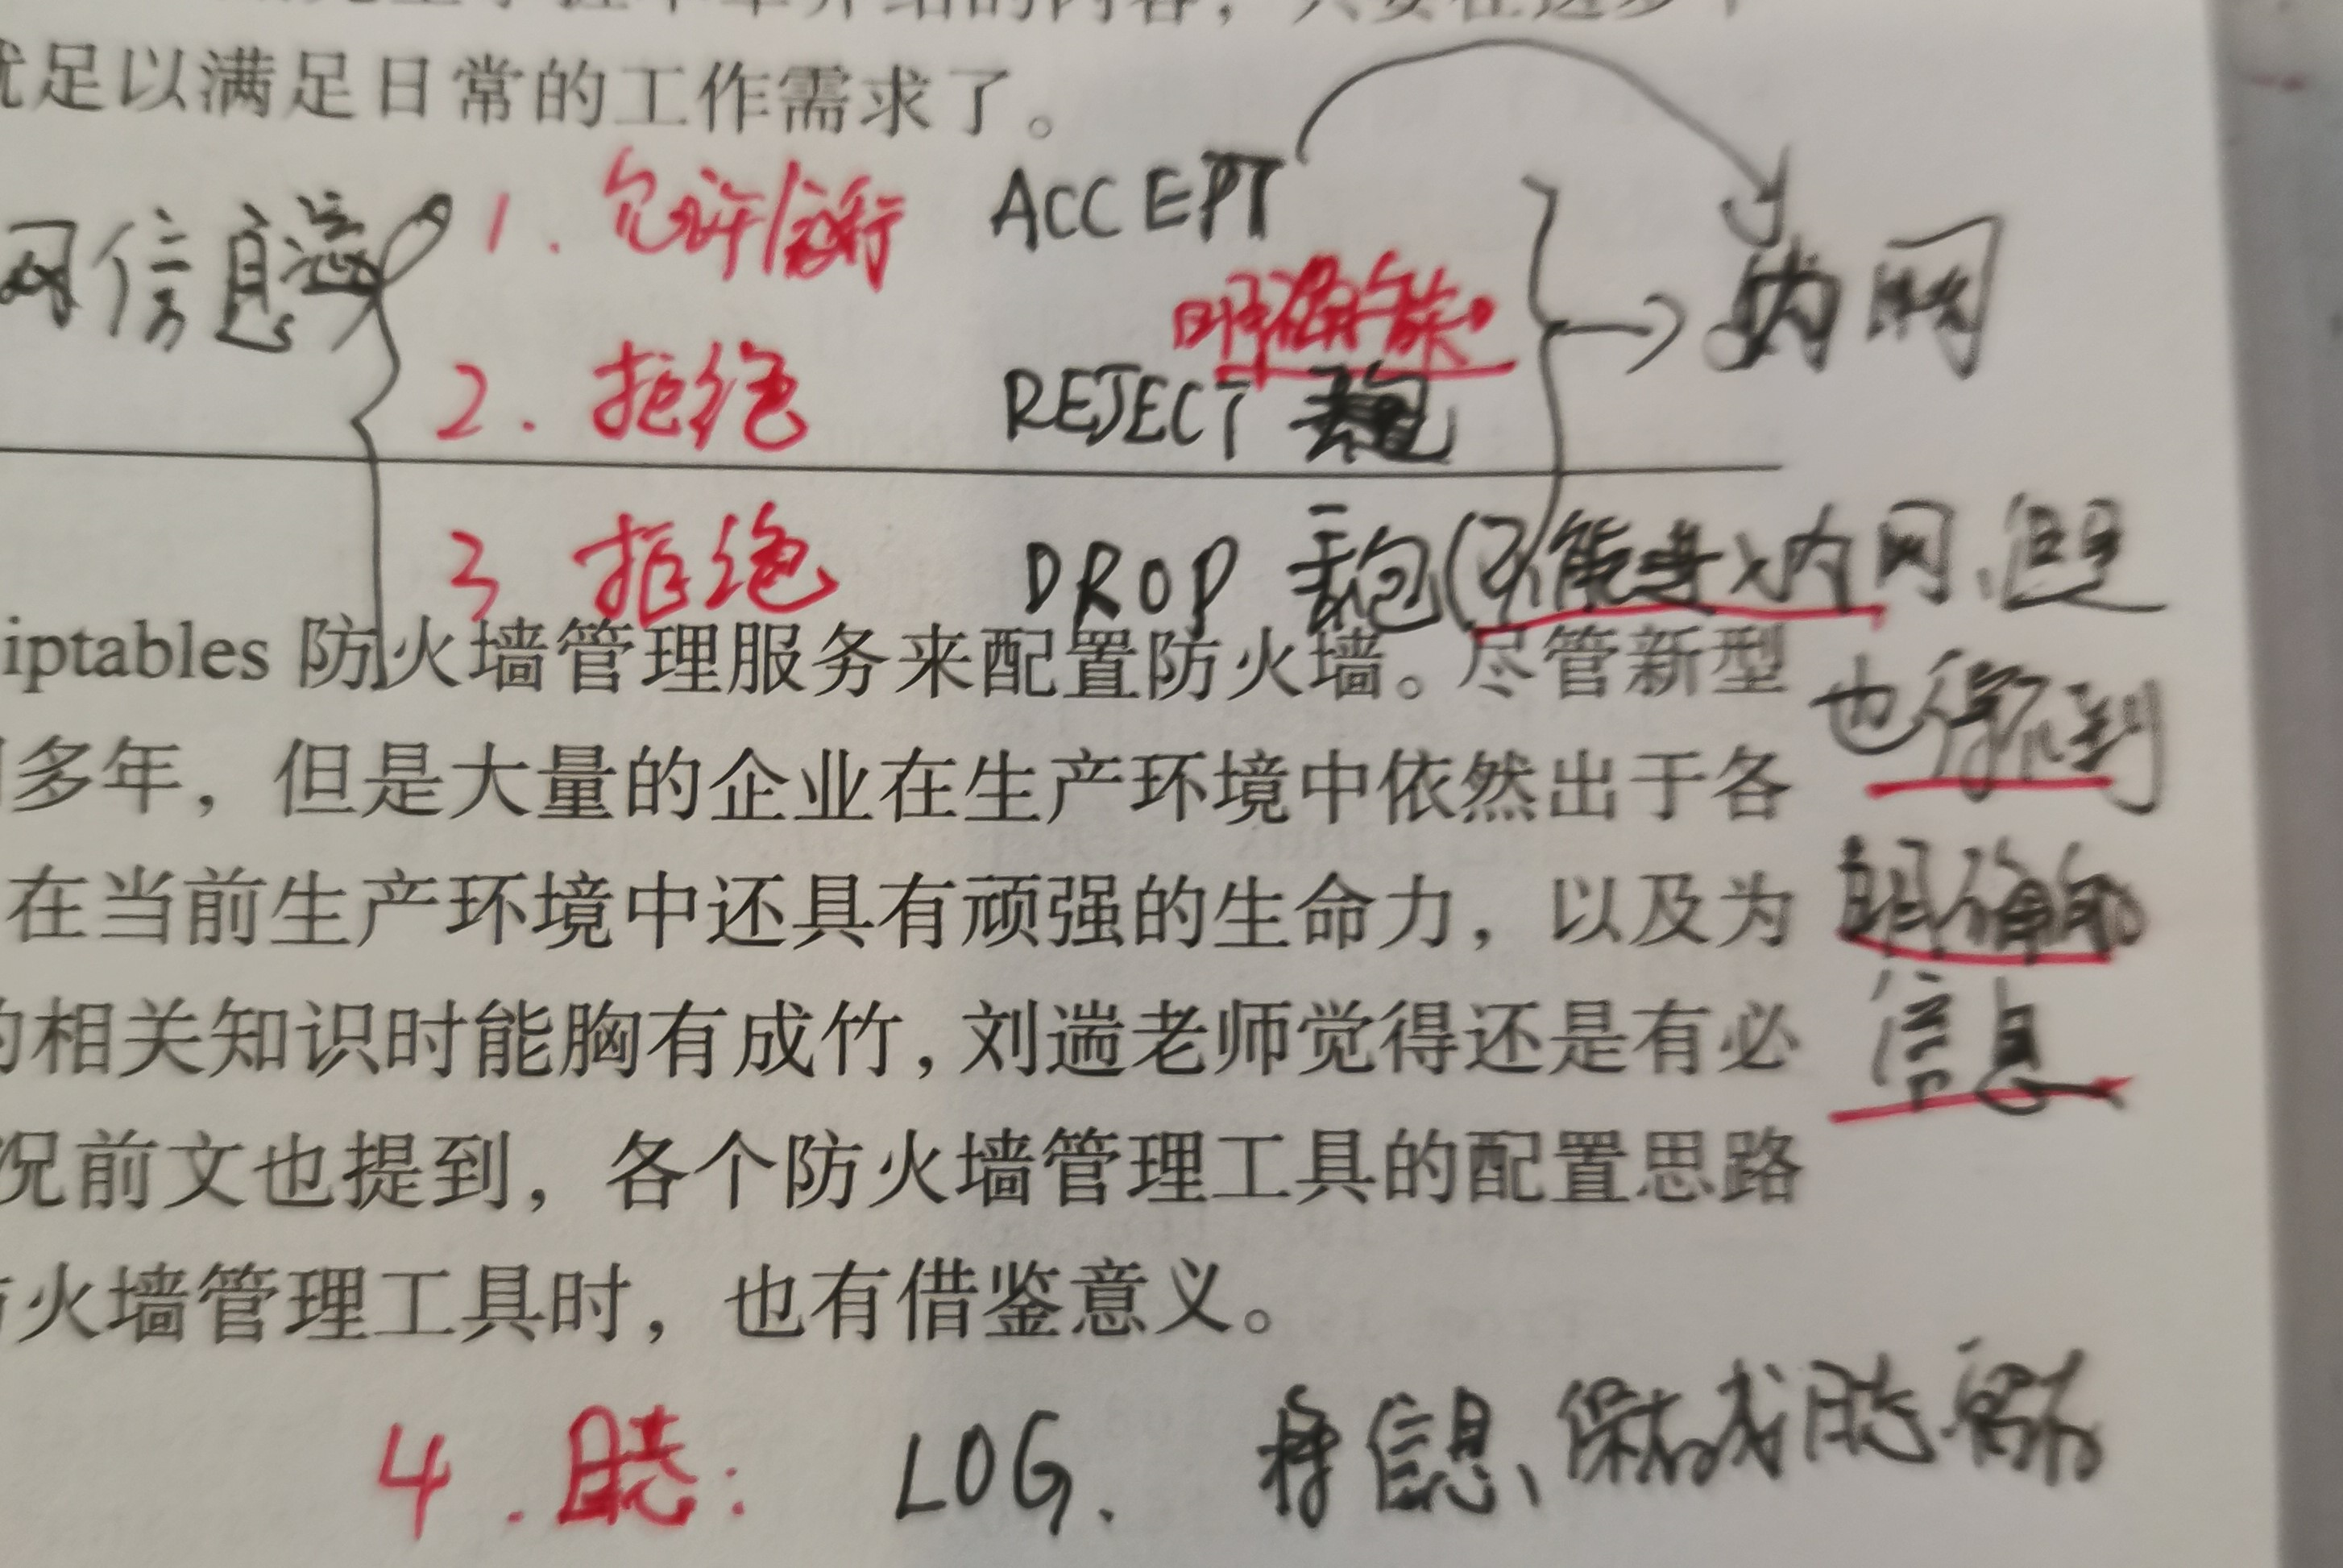 就足以满足日常的工作需求了。
网信息流
1. 允许/放行 ACCEPT
明确拒绝
内网
2. 拒绝 REJECT
3. 拒绝 DROP 丢包(不能进入内网、但是
iptables 防火墙管理服务来配置防火墙。尽管新型
也得不到
多年，但是大量的企业在生产环境中依然出于各
在当前生产环境中还具有顽强的生命力，以及为
明确的
的相关知识时能胸有成竹，刘遄老师觉得还是有必
信息
况前文也提到，各个防火墙管理工具的配置思路
火墙管理工具时，也有借鉴意义。
4. 日志: LOG. 将信息、保存成日志